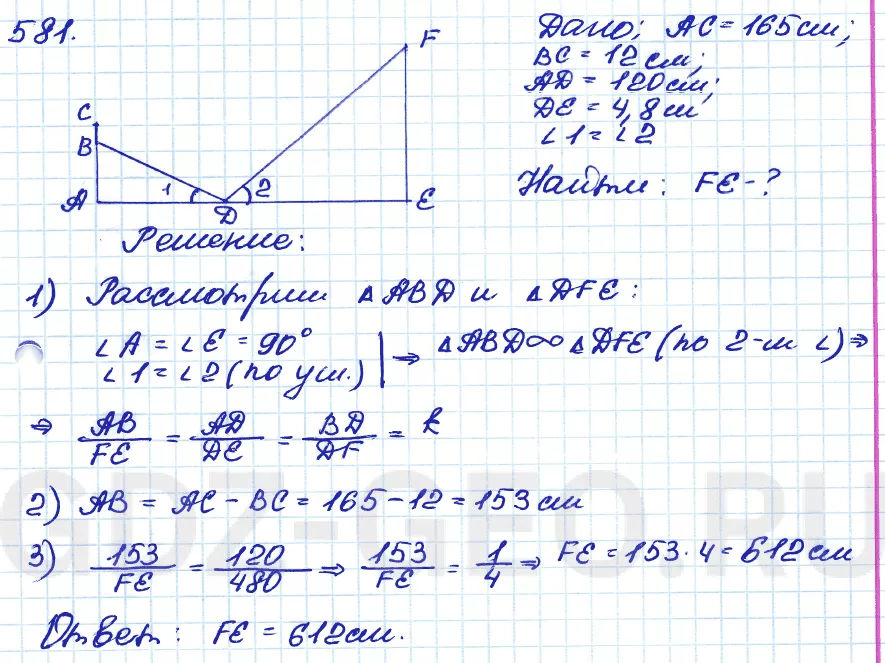 581.
Дано: AC = 165 см;
BC = 12 см;
AD = 120 см;
DE = 4,8 м
∠1 = ∠2
Найти: FE - ?
F
C
B
1
2
A
D
E
Решение:
1) Рассмотрим △ABD и △DFE:
∠A = ∠E = 90°
∠1 = ∠2 (по усл.) | ⇒ △ABD ∞ △DFE (по 2-м ∠) ⇒
⇒ AB/FE = AD/DE = BD/DF = k
2) AB = AC - BC = 165 - 12 = 153 см
3) 153/FE = 120/480 ⇒ 153/FE = 1/4 ⇒ FE = 153 · 4 = 612 см
Ответ: FE = 612 см.
GDZ-GEO.RU